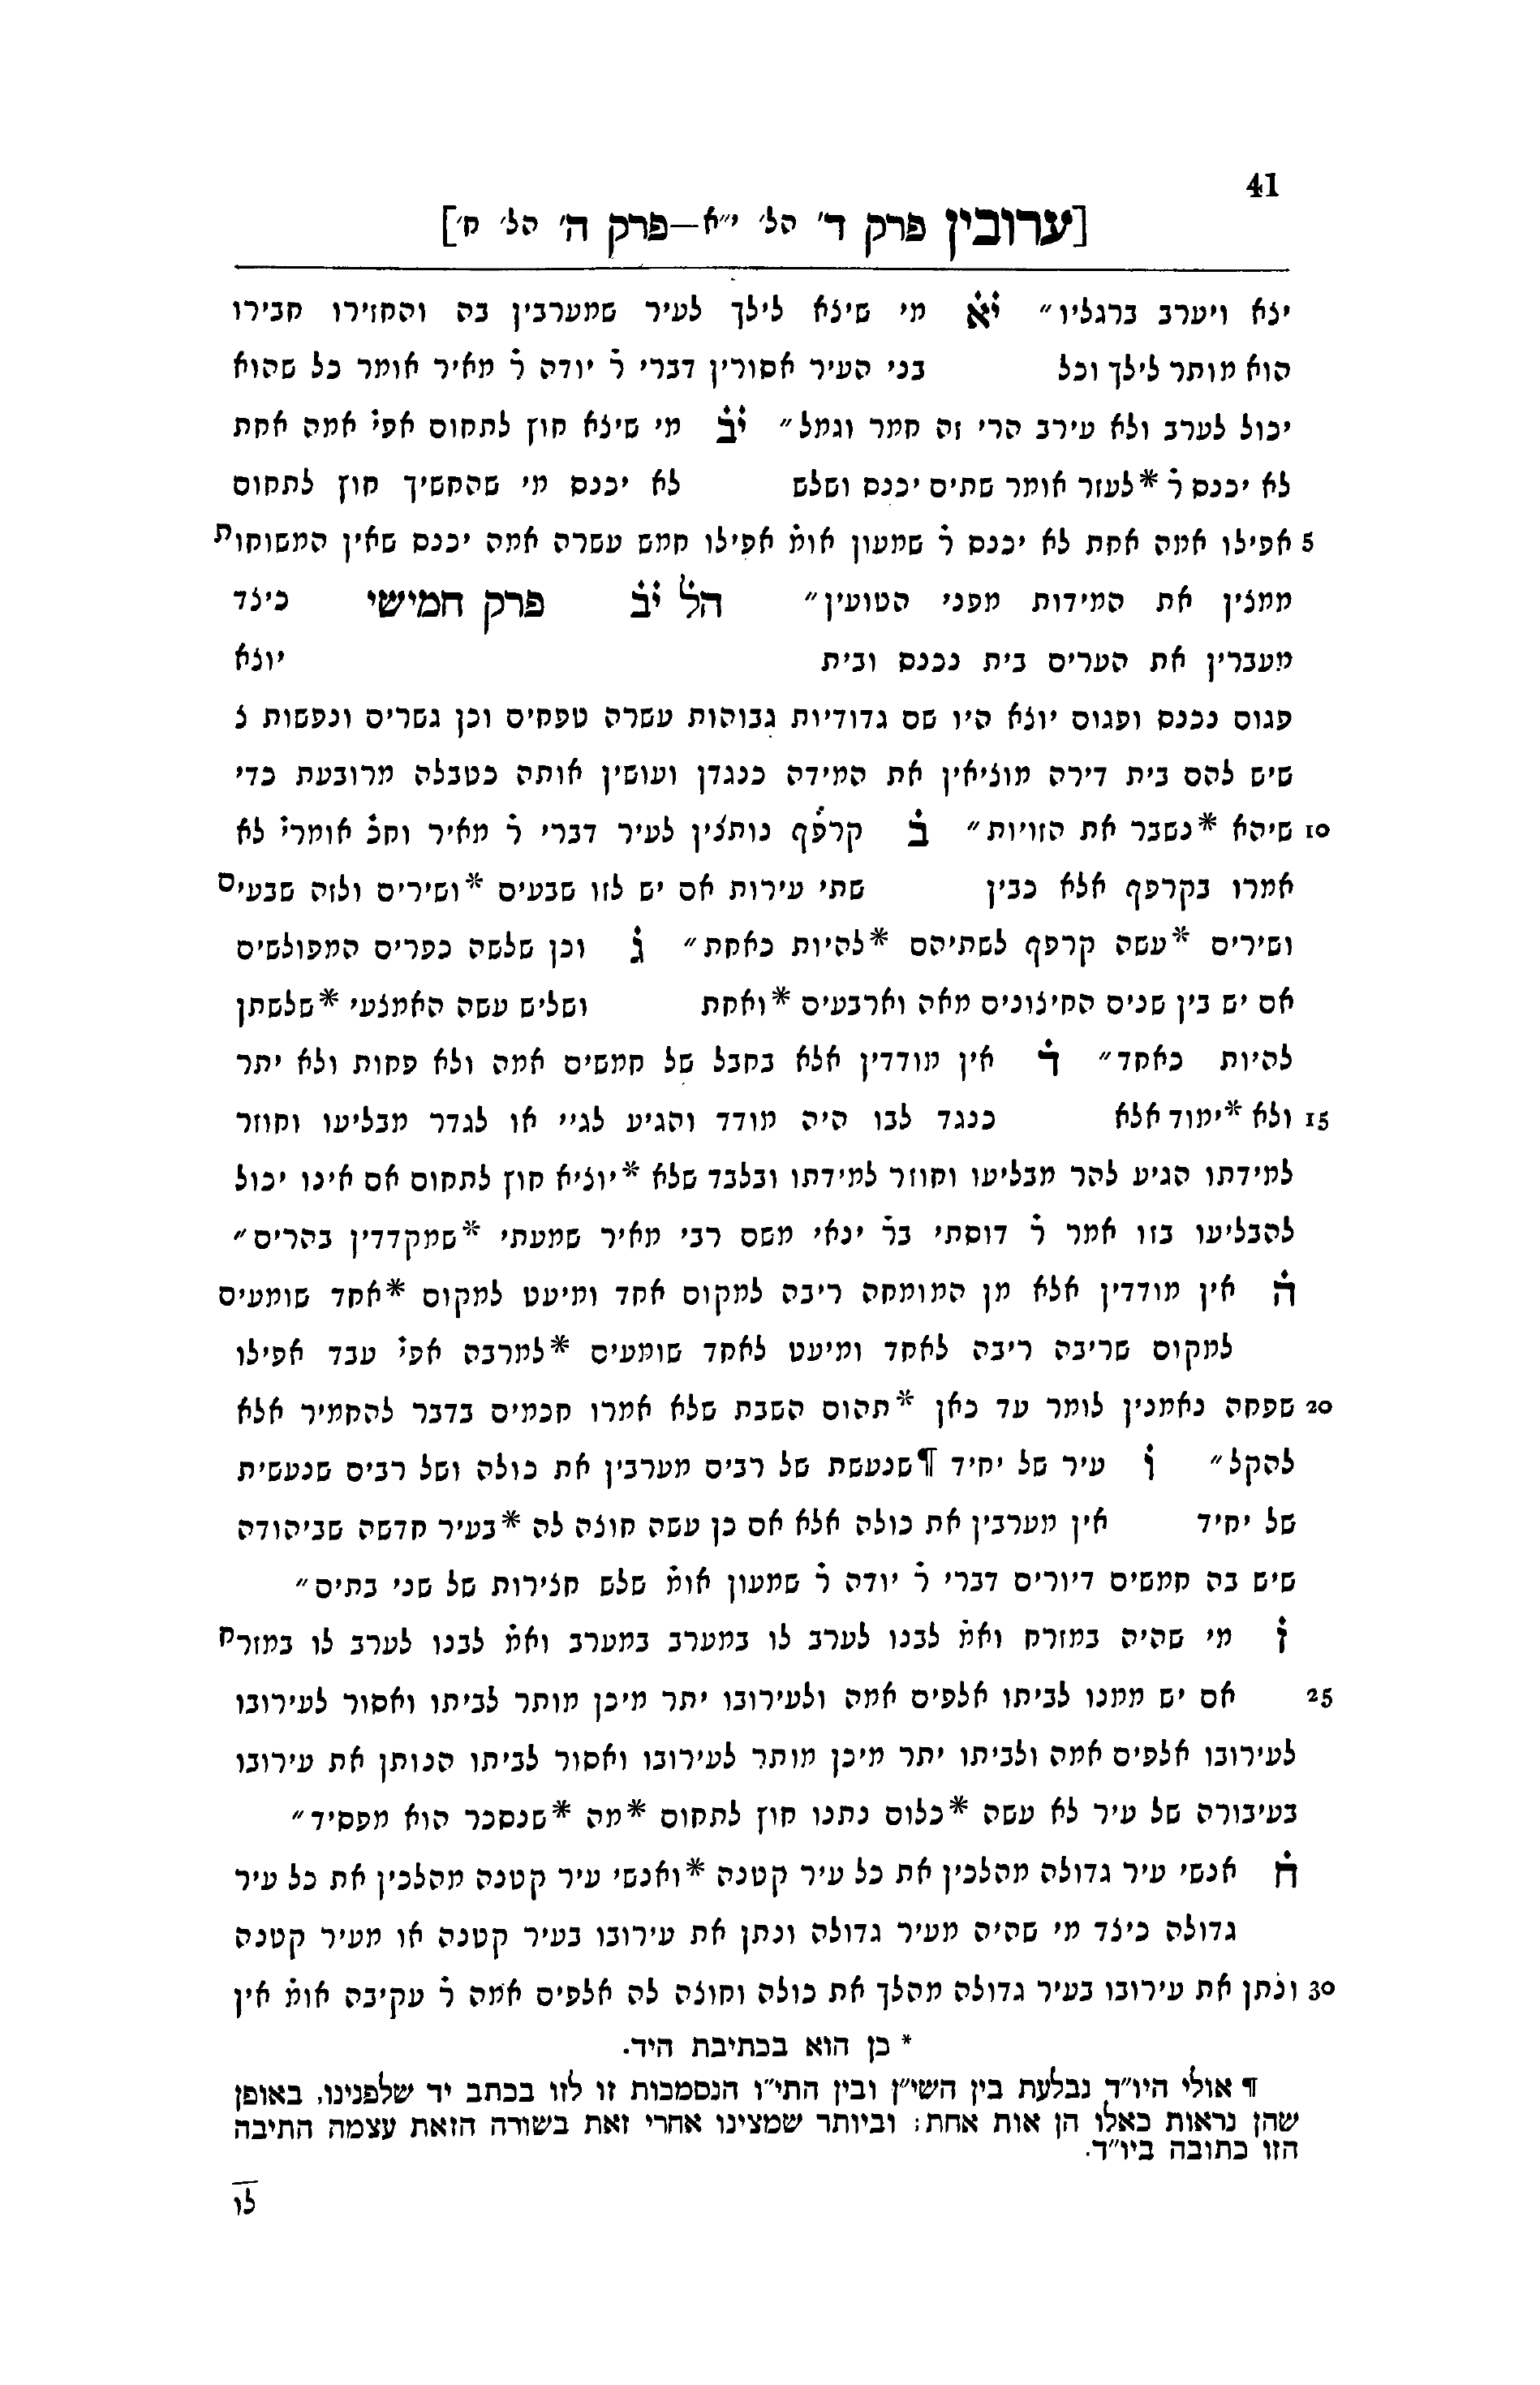 41
[ערובין פרק ד׳ הל׳ י״א—פרק ה׳ הל׳ ח׳]
יצא ויערב ברגליו״ יא מי שיצא לילך לעיר שמערבין בה והחזירו חבירו
הוא מותר לילך וכל בני העיר אסורין דברי ר׳ יודה ר׳ מאיר אומר כל שהוא
יכול לערב ולא עירב הרי זה חמר וגמל״ יב מי שיצא חוץ לתחום אפי׳ אמה אחת
לא יכנס ר׳ *לעזר אומר שתים יכנס ושלש לא יכנס מי שהחשיך חוץ לתחום
5 אפילו אמה אחת לא יכנס ר׳ שמעון אומ׳ אפילו חמש עשרה אמה יכנס שאין המשוחות
ממצין את המידות מפני הטועין״ הל׳ יב פרק חמישי כיצד
מעברין את הערים בית נכנס ובית יוצא
פגום נכנס ופגום יוצא היו שם גדודיות גבוהות עשרה טפחים וכן גשרים ונפשות צ
שיש להם בית דירה מוציאין את המידה כנגדן ועושין אותה כטבלה מרובעת כדי
10 שיהא *נשבר את הזויות״ ב קרפף נותנין לעיר דברי ר׳ מאיר וחכ׳ אומרי׳ לא
אמרו בקרפף אלא כבין שתי עירות אם יש לזו שבעים *ושירים ולזה שבעים
ושירים *עשה קרפף לשתיהם *להיות כאחת״ ג וכן שלשה כפרים המפולשים
אם יש בין שנים החיצונים מאה וארבעים *ואחת ושליש עשה האמצעי *שלשתן
להיות כאחד״ ד אין מודדין אלא בחבל של חמשים אמה ולא פחות ולא יתר
15 ולא *ימוד אלא כנגד לבו היה מודד והגיע לגיי או לגדר מבליעו וחוזר
למידתו הגיע להר מבליעו וחוזר למידתו ובלבד שלא *יוציא חוץ לתחום אם אינו יכול
להבליעו בזו אמר ר׳ דוסתי בר׳ ינאי משם רבי מאיר שמעתי *שמקדדין בהרים״
ה אין מודדין אלא מן המומחה ריבה למקום אחד ומיעט למקום *אחד שומעים
למקום שריבה ריבה לאחד ומיעט לאחד שומעים *למרבה אפי׳ עבד אפילו
20 שפחה נאמנין לומר עד כאן *תהום השבת שלא אמרו חכמים בדבר להחמיר אלא
להקל״ ו עיר של יחיד ¶שנעשת של רבים מערבין את כולה ושל רבים שנעשית
של יחיד אין מערבין את כולה אלא אם כן עשה חוצה לה *בעיר חדשה שביהודה
שיש בה חמשים דיורים דברי ר׳ יודה ר׳ שמעון אומ׳ שלש חצירות של שני בתים״
ז מי שהיה במזרח ואמ׳ לבנו לערב לו במערב במערב ואמ׳ לבנו לערב לו במזרח
25 אם יש ממנו לביתו אלפים אמה ולעירובו יתר מיכן מותר לביתו ואסור לעירובו
לעירובו אלפים אמה ולביתו יתר מיכן מותר לעירובו ואסור לביתו הנותן את עירובו
בעיבורה של עיר לא עשה *כלום נתנו חוץ לתחום *מה *שנסכר הוא מפסיד״
ח אנשי עיר גדולה מהלכין את כל עיר קטנה *ואנשי עיר קטנה מהלכין את כל עיר
גדולה כיצד מי שהיה מעיר גדולה ונתן את עירובו בעיר קטנה או מעיר קטנה
30 ונתן את עירובו בעיר גדולה מהלך את כולה וחוצה לה אלפים אמה ר׳ עקיבה אומ׳ אין
* כן הוא בכתיבת היד.
¶ אולי היו״ד נבלעת בין השי״ן ובין התי״ו הנסמכות זו לזו בכתב יד שלפנינו, באופן
שהן נראות כאלו הן אות אחת; וביותר שמצינו אחרי זאת בשורה הזאת עצמה התיבה
הזו כתובה ביו״ד.
לו